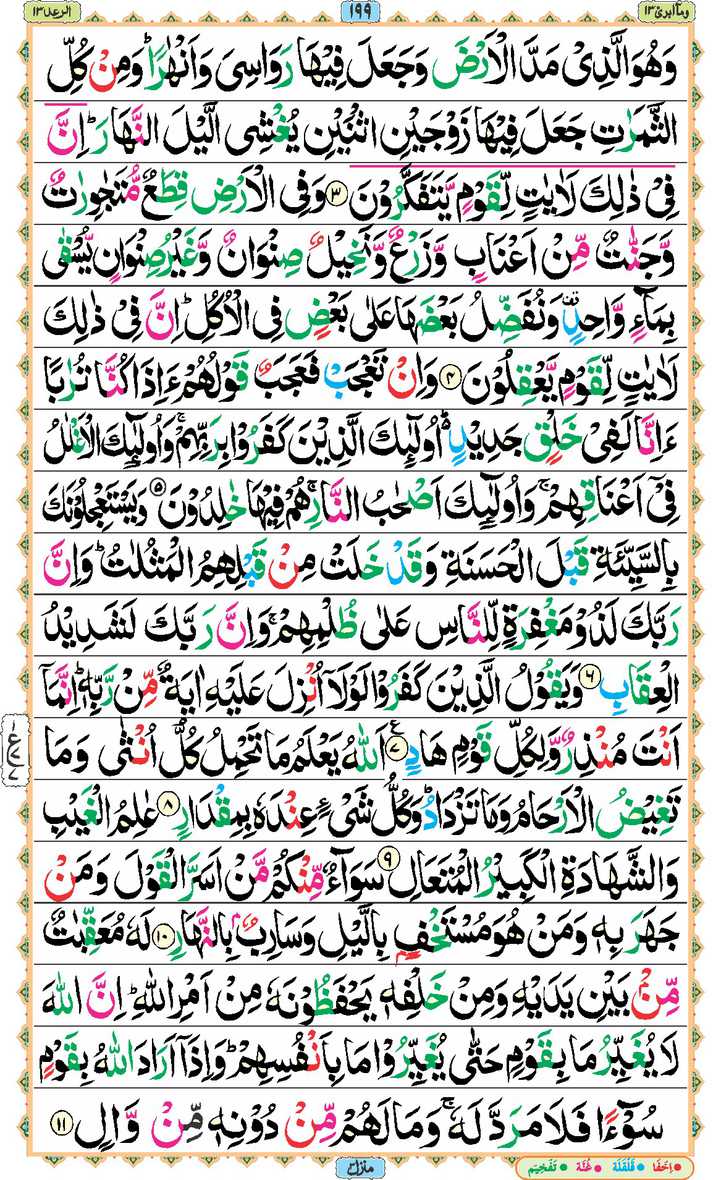 الرعد ١٣
١٩٩
ومآ ابرئ ١٣
وَهُوَ الَّذِیْ مَدَّ الْاَرْضَ وَجَعَلَ فِیْهَا رَوَاسِیَ وَاَنْهٰرًا ؕ وَمِنْ كُلِّ
الثَّمَرٰتِ جَعَلَ فِیْهَا زَوْجَیْنِ اثْنَیْنِ یُغْشِی الَّیْلَ النَّهَارَ ؕ اِنَّ
فِیْ ذٰلِكَ لَاٰیٰتٍ لِّقَوْمٍ یَّتَفَكَّرُوْنَ ﴿۳﴾ وَفِی الْاَرْضِ قِطَعٌ مُّتَجٰوِرٰتٌ
وَّجَنّٰتٌ مِّنْ اَعْنَابٍ وَّزَرْعٌ وَّنَخِیْلٌ صِنْوَانٌ وَّغَیْرُ صِنْوَانٍ یُّسْقٰی
بِمَآءٍ وَّاحِدٍ ۟ وَنُفَضِّلُ بَعْضَهَا عَلٰی بَعْضٍ فِی الْاُكُلِ ؕ اِنَّ فِیْ ذٰلِكَ
لَاٰیٰتٍ لِّقَوْمٍ یَّعْقِلُوْنَ ﴿۴﴾ وَاِنْ تَعْجَبْ فَعَجَبٌ قَوْلُهُمْ ءَاِذَا كُنَّا تُرٰبًا
ءَاِنَّا لَفِیْ خَلْقٍ جَدِیْدٍ ؕ۬ اُولٰٓئِكَ الَّذِیْنَ كَفَرُوْا بِرَبِّهِمْ ۚ وَاُولٰٓئِكَ الْاَغْلٰلُ
فِیْۤ اَعْنَاقِهِمْ ۚ وَاُولٰٓئِكَ اَصْحٰبُ النَّارِ ۚ هُمْ فِیْهَا خٰلِدُوْنَ ﴿۵﴾ وَیَسْتَعْجِلُوْنَكَ
بِالسَّیِّئَةِ قَبْلَ الْحَسَنَةِ وَقَدْ خَلَتْ مِنْ قَبْلِهِمُ الْمَثُلٰتُ ؕ وَاِنَّ
رَبَّكَ لَذُوْ مَغْفِرَةٍ لِّلنَّاسِ عَلٰی ظُلْمِهِمْ ۚ وَاِنَّ رَبَّكَ لَشَدِیْدُ
الْعِقَابِ ﴿۶﴾ وَیَقُوْلُ الَّذِیْنَ كَفَرُوْا لَوْلَاۤ اُنْزِلَ عَلَیْهِ اٰیَةٌ مِّنْ رَّبِّهٖ ؕ اِنَّمَاۤ
اَنْتَ مُنْذِرٌ وَّلِكُلِّ قَوْمٍ هَادٍ ﴿۷﴾ اَللّٰهُ یَعْلَمُ مَا تَحْمِلُ كُلُّ اُنْثٰی وَمَا
تَغِیْضُ الْاَرْحَامُ وَمَا تَزْدَادُ ؕ وَكُلُّ شَیْءٍ عِنْدَهٗ بِمِقْدَارٍ ﴿۸﴾ عٰلِمُ الْغَیْبِ
وَالشَّهَادَةِ الْكَبِیْرُ الْمُتَعَالِ ﴿۹﴾ سَوَآءٌ مِّنْكُمْ مَّنْ اَسَرَّ الْقَوْلَ وَمَنْ
جَهَرَ بِهٖ وَمَنْ هُوَ مُسْتَخْفٍۭ بِالَّیْلِ وَسَارِبٌۢ بِالنَّهَارِ ﴿۱۰﴾ لَهٗ مُعَقِّبٰتٌ
مِّنْۢ بَیْنِ یَدَیْهِ وَمِنْ خَلْفِهٖ یَحْفَظُوْنَهٗ مِنْ اَمْرِ اللّٰهِ ؕ اِنَّ اللّٰهَ
لَا یُغَیِّرُ مَا بِقَوْمٍ حَتّٰی یُغَیِّرُوْا مَا بِاَنْفُسِهِمْ ؕ وَاِذَاۤ اَرَادَ اللّٰهُ بِقَوْمٍ
سُوْٓءًا فَلَا مَرَدَّ لَهٗ ۚ وَمَا لَهُمْ مِّنْ دُوْنِهٖ مِنْ وَّالٍ ﴿۱۱﴾
منزل ٣
اِخفَا • قَلْقَلَة • غُنَّة • تَفْخِيْم •